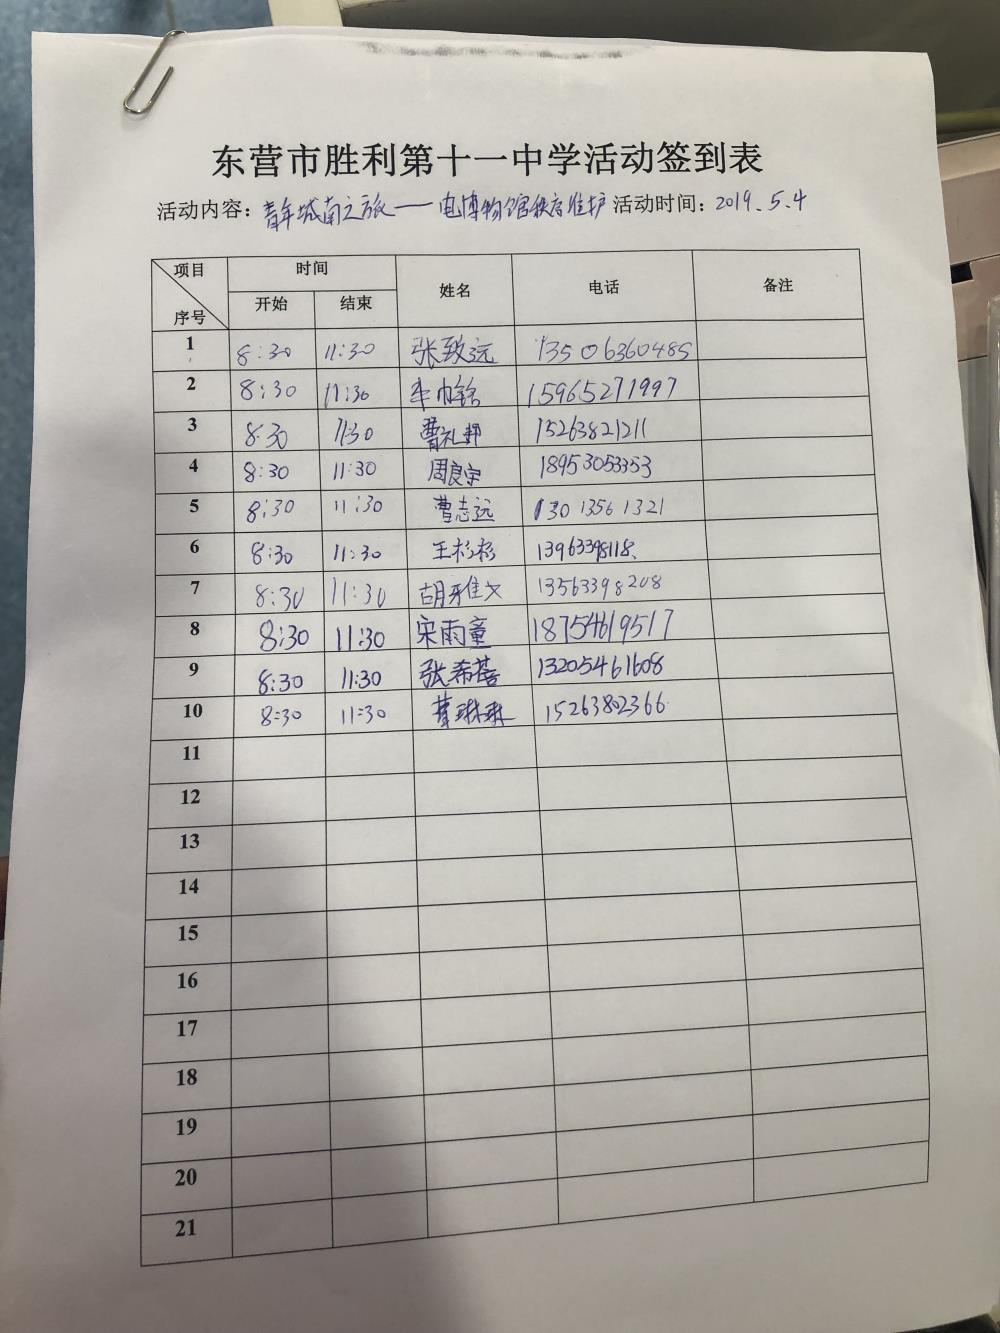 东营市胜利第十一中学活动签到表
活动内容：青年城南之旅——电博物馆秩序维护 活动时间：2019.5.4
项目 时间 姓名 电话 备注
序号 开始 结束
1 8:30 11:30 张致远 13506360485
2 8:30 11:30 15965271997
3 8:30 11:30 曹礼邦 15263821211
4 8:30 11:30 周良宇 18953053353
5 8:30 11:30 曹志远 13013561321
6 8:30 11:30 王杉杉 13963398118
7 8:30 11:30 胡雅文 13563398208
8 8:30 11:30 宋雨童 18754619517
9 8:30 11:30 张希蓓 13205461608
10 8:30 11:30 15263802366
11
12
13
14
15
16
17
18
19
20
21